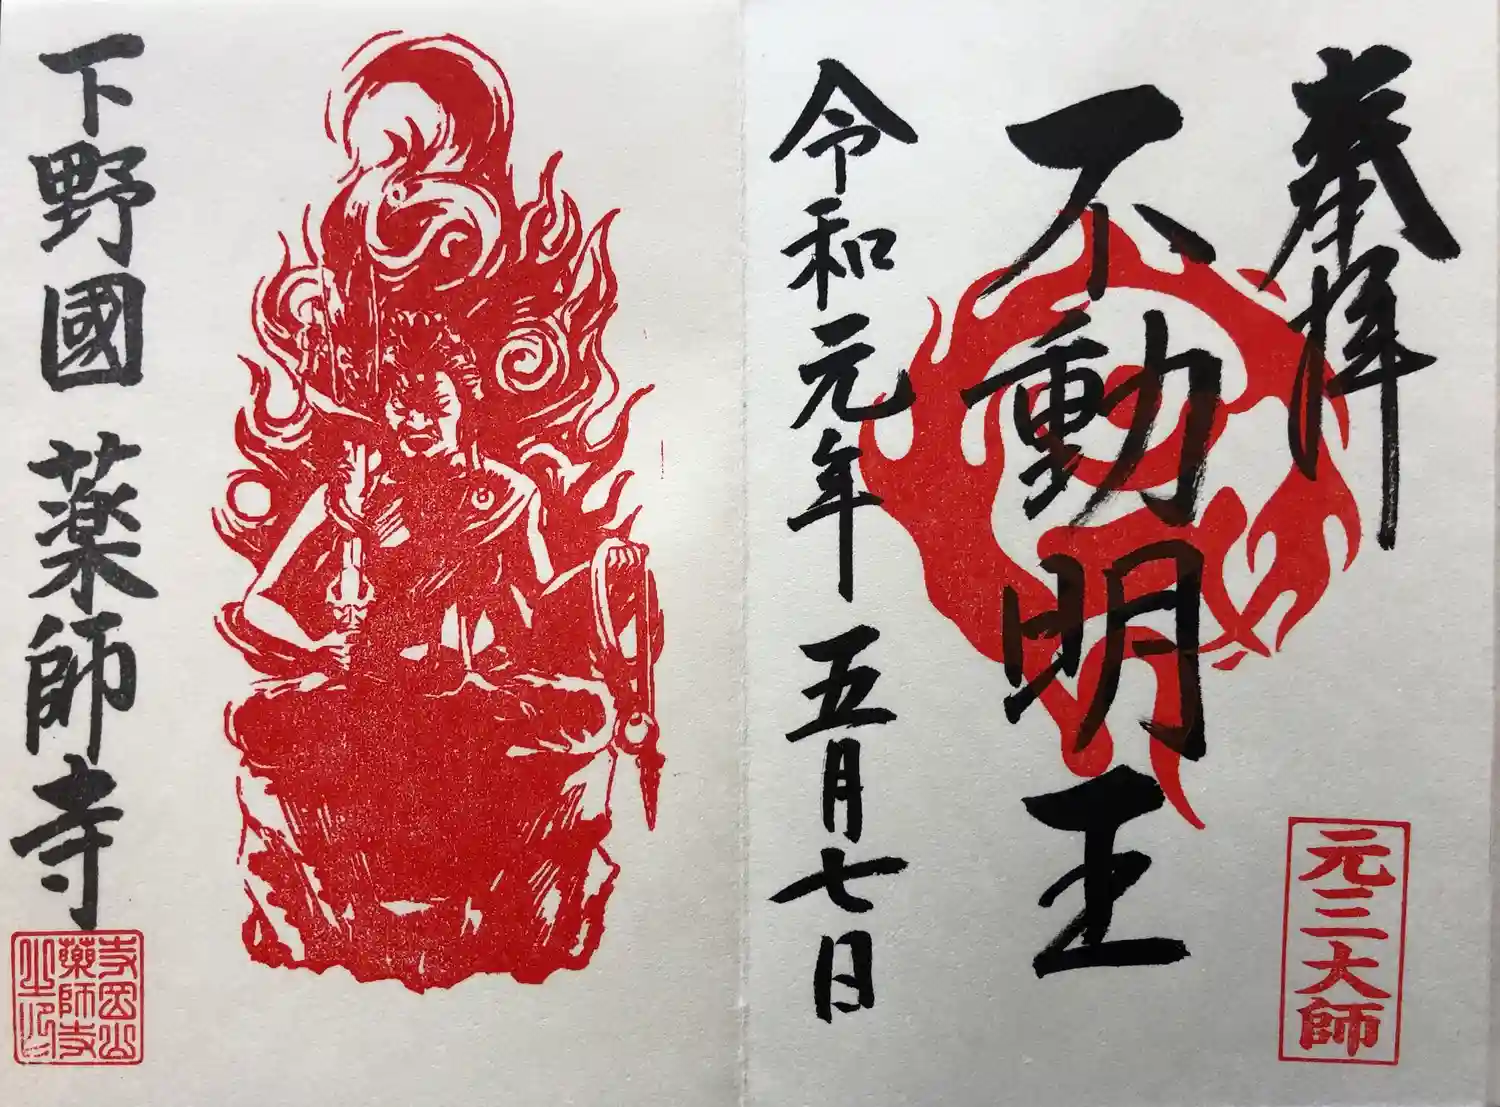 奉拝
元三大師
不動明王
令和元年 五月七日
下野國 薬師寺
寺岡山
薬師寺
之印